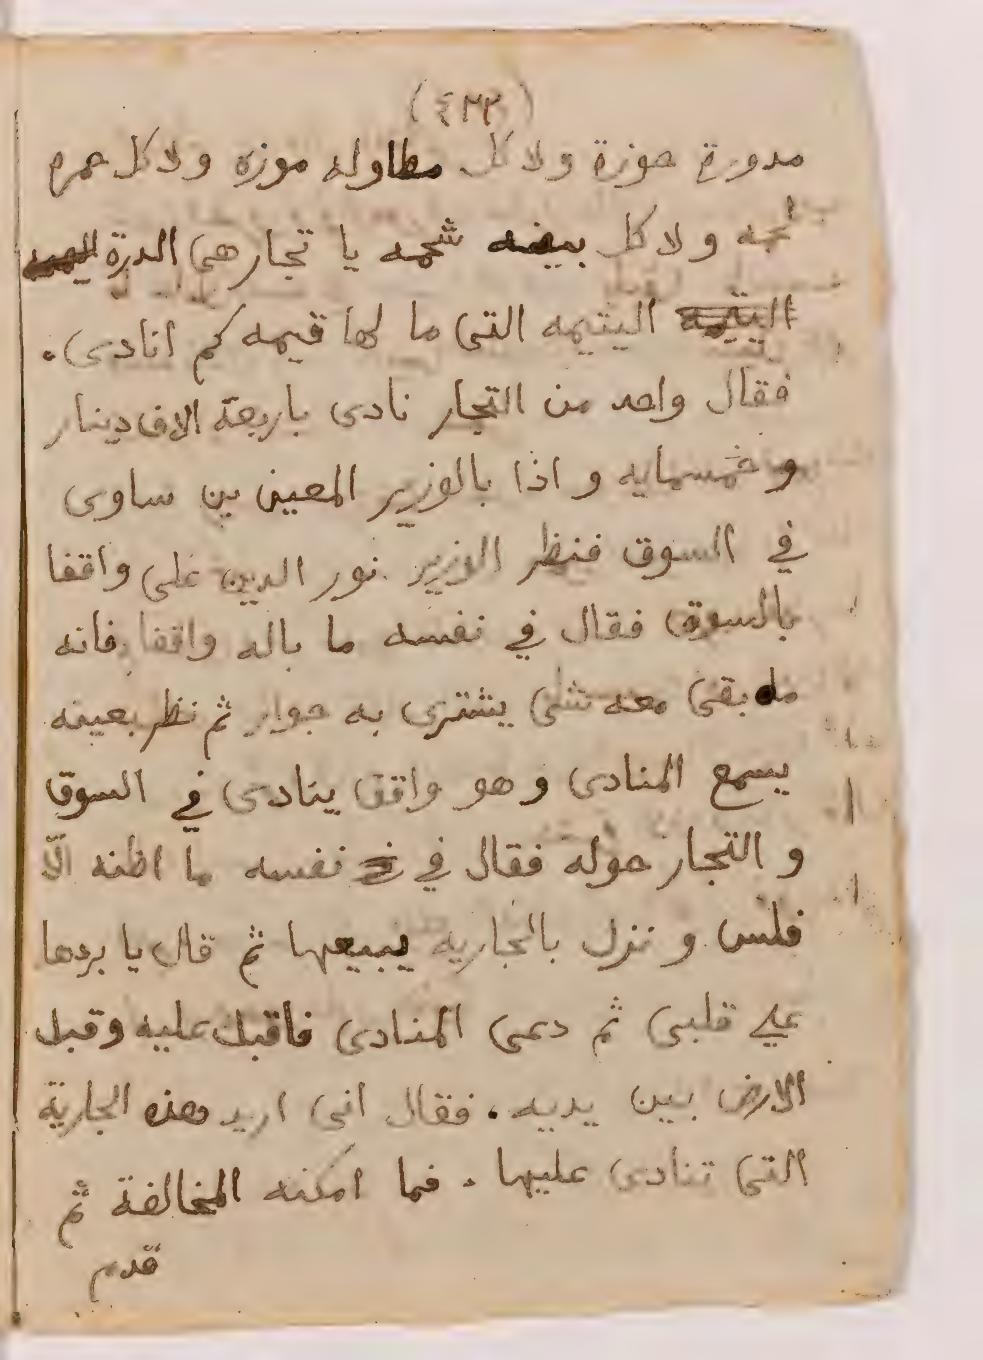 (٤٣٣)
مدورة جوزة ولا كل مطاوله موزه ولا كل حمره
لحمه ولا كل بيضه شحمه يا تجار هى الدرة
اليتيمه اليتيمه التى ما لها قيمه كم انادى .
فقال واحد من التجار نادى باربعة الاف دينار
وخمسمايه واذا بالوزير المعين بن ساوى
في السوق فنظر الوزير نور الدين على واقفا
بالسوق فقال في نفسه ما باله واقفا فانه
ما بقى معه شى يشترى به جوار ثم نظر بعينه
يسمع المنادى وهو واقف ينادى في السوق
والتجار حوله فقال في نفسه ما اظنه الّا
فلس ونزل بالجاريه يبيعها ثم قال يا بردها
علي قلبى ثم دعى المنادى فاقبل عليه وقبل
الارض بين يديه . فقال انى اريد هذه الجارية
التى تنادى عليها . فما امكنه المخالفة ثم
قدم